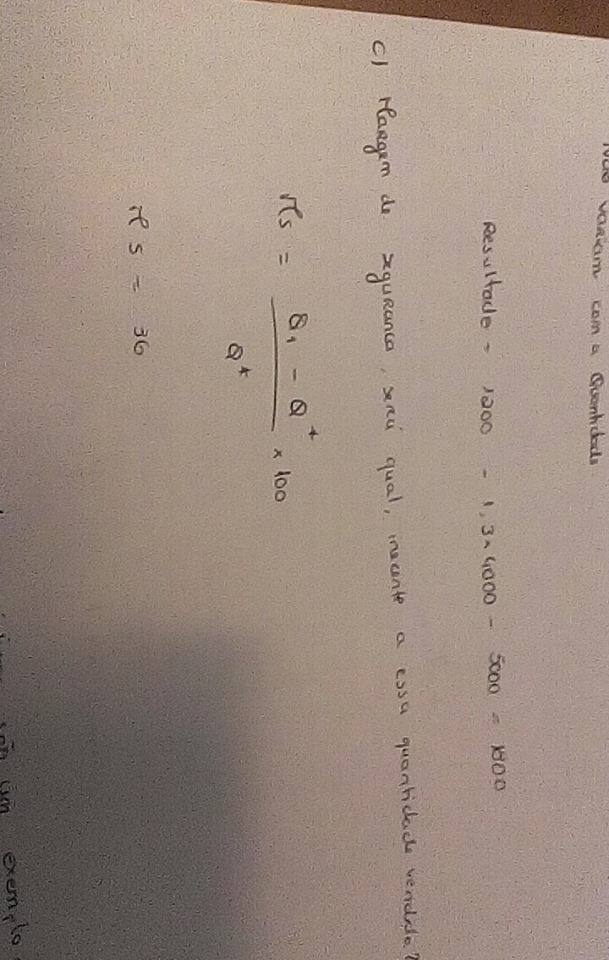 Não variam com a Quantidade
Resultado = 1200 - 1,3 × 4000 - 5000 = 1800
c) Margem de seguranca, será qual, inerente a essa quantidade vendida?
Ms = Q₁ - Q* / Q* × 100
Ms = 36
são um exemplo